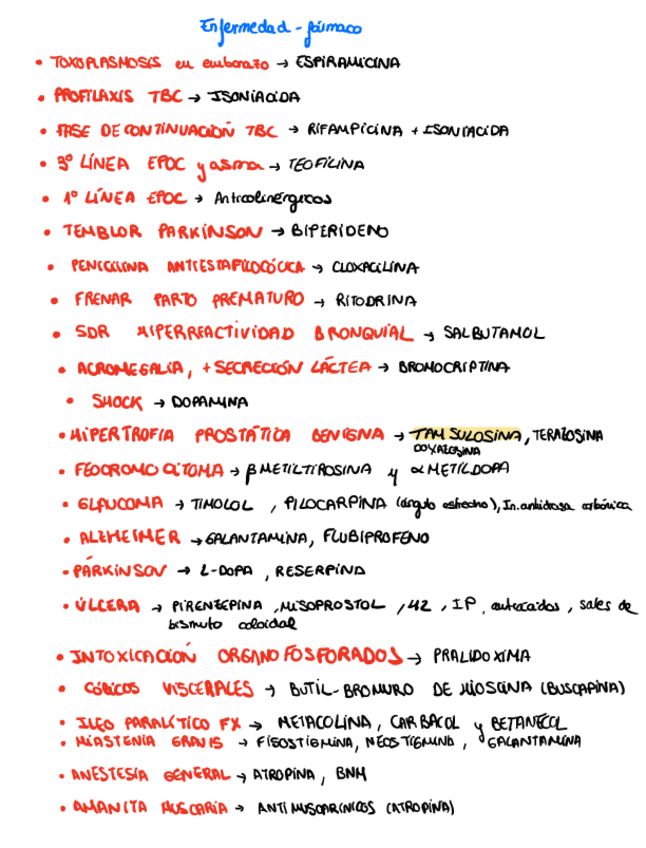 Enfermedad - fármaco
• TOXOPLASMOSIS en embarazo → ESPIRAMICINA
• PROFILAXIS TBC → ISONIACIDA
• FASE DE CONTINUACIÓN TBC → RIFAMPICINA + ISONIACIDA
• 3º LÍNEA EPOC y asma → TEOFILINA
• 1º LÍNEA EPOC → Anticolinérgicos
• TEMBLOR PARKINSON → BIPERIDENO
• PENICILINA ANTIESTAFILOCÓCICA → CLOXACILINA
• FRENAR PARTO PREMATURO → RITODRINA
• SDR HIPERREACTIVIDAD BRONQUIAL → SALBUTAMOL
• ACROMEGALIA, + SECRECIÓN LÁCTEA → BROMOCRIPTINA
• SHOCK → DOPAMINA
• HIPERTROFIA PROSTÁTICA BENIGNA → TAMSULOSINA, TERAZOSINA
DOXAZOSINA
• FEOCROMOCITOMA → β METILTIROSINA y α METILDOPA
• GLAUCOMA → TIMOLOL, PILOCARPINA (ángulo estrecho), In. anhidrasa carbónica
• ALZHEIMER → GALANTAMINA, FLUBIPROFENO
• PÁRKINSON → L-DOPA, RESERPINA
• ÚLCERA → PIRENZEPINA, MISOPROSTOL, H2, IP, antiacidos, sales de
bismuto coloidal
• INTOXICACIÓN ORGANOFOSFORADOS → PRALIDOXIMA
• CÓLICOS VISCERALES → BUTIL-BROMURO DE HIOSCINA (BUSCAPINA)
• ILEO PARALÍTICO FX → METACOLINA, CARBACOL y BETANECOL
• MIASTENIA GRAVIS → FISOSTIGMINA, NEOSTIGMINA, GALANTAMINA
• ANESTESIA GENERAL → ATROPINA, BNM
• AMANITA MUSCARIA → ANTIMUSCARINICOS (ATROPINA)